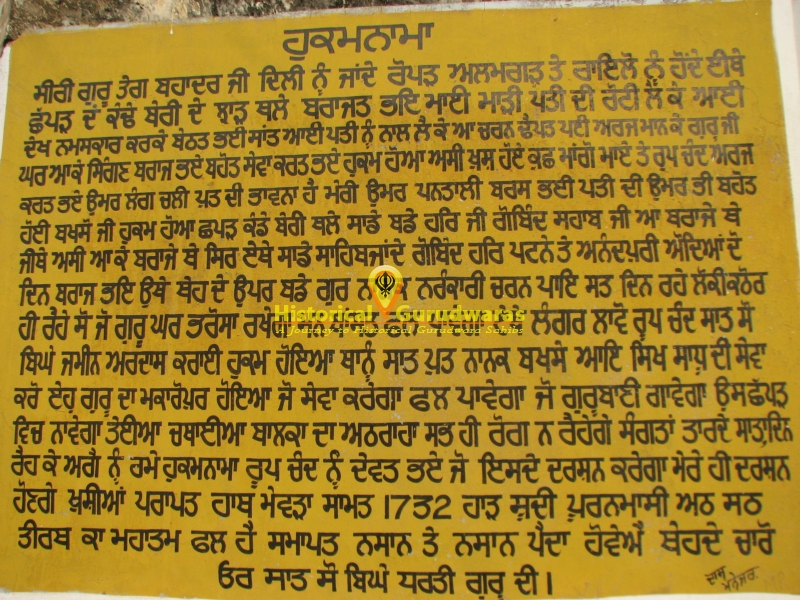 ਹੁਕਮਨਾਮਾ
ਸੀਰੀ ਗੁਰੂ ਤੇਗ ਬਹਾਦਰ ਜੀ ਦਿਲੀ ਨੂੰ ਜਾਂਦੇ ਰੋਪੜ ਅਲਮਗੜ ਤੇ ਰਾਇਲੋ ਨੂੰ ਹੋਂਦੇ ਈਥੇ
ਛੱਪੜ ਦੇ ਕੰਢੇ ਬੇਰੀ ਦੇ ਝਾੜ ਥਲੇ ਬਰਾਜਤ ਭਇ ਮਾਈ ਮਾੜੀ ਪਤੀ ਦੀ ਰੋਟੀ ਲੈ ਕੇ ਆਈ
ਦੇਖ ਨਮਸਕਾਰ ਕਰਕੇ ਬੇਠਤ ਭਈ ਸਾਂਤ ਆਈ ਪਤੀ ਨੂੰ ਨਾਲ ਲੈ ਕੇ ਆ ਚਰਨ ਢੈਪਤ ਪਈ ਅਰਜ ਮਾਨ ਕੇ ਗੁਰੂ ਜੀ
ਘਰ ਆਕੇ ਸਿੰਗਣ ਬਰਾਜ ਭਏ ਬਹੋਤ ਸੇਵਾ ਕਰਤ ਭਏ ਹੁਕਮ ਹੋਆ ਅਸੀ ਖੁਸ਼ ਹੋਏ ਕੁਛ ਮਾਂਗੋ ਮਾਏ ਤੇ ਰੂਪ ਚੰਦ ਅਰਜ
ਕਰਤ ਭਏ ਉਮਰ ਲੰਗ ਚਲੀ ਪੁਤ ਦੀ ਭਾਵਨਾ ਹੈ ਮੇਰੀ ਉਮਰ ਪਨਤਾਲੀ ਬਰਸ ਭਈ ਪਤੀ ਦੀ ਉਮਰ ਭੀ ਬਹੋਤ
ਹੋਈ ਬਖਸੋ ਜੀ ਹੁਕਮ ਹੋਆ ਛਪੜ ਕੰਡੇ ਬੇਰੀ ਥਲੇ ਸਾਡੇ ਬਡੇ ਹਰਿ ਜੀ ਗੋਬਿੰਦ ਸਹਾਬ ਜੀ ਆ ਬਰਾਜੇ ਥੇ
ਜੀਥੇ ਅਸੀ ਆ ਕੇ ਬਰਾਜੇ ਥੇ ਸਿਰ ਏਥੇ ਸਾਡੇ ਸਾਹਿਬਜਾਂਦੇ ਗੋਬਿੰਦ ਹਰਿ ਪਟਨੇ ਤੇ ਅਨੰਦਪੁਰੀ ਔਦਿਆਂ ਦੋ
ਦਿਨ ਬਰਾਜ ਭਇ ਉਥੇ ਥੇਹ ਦੇ ਉਪਰ ਬਡੇ ਗੁਰ ਨਰੰਕਾਰੀ ਚਰਨ ਪਾਇ ਸਤ ਦਿਨ ਰਹੇ ਲੋਕੀਕਠੋਰ
Historical Gurudwaras
A journey to Historical Gurudwara Sahibs
ਹੀ ਰੈਹੇ ਸੋ ਜੋ ਗੁਰੂ ਘਰ ਭਰੋਸਾ ਲੰਗਰ ਲਾਵੋ ਰੂਪ ਚੰਦ ਸਾਤ ਸੌ
ਬਿਘੇ ਜਮੀਨ ਅਰਦਾਸ ਕਰਾਈ ਹੁਕਮ ਹੋਇਆ ਥਾਨੂੰ ਸਾਤ ਪੁਤ ਨਾਨਕ ਬਖਸੇ ਆਇ ਸਿਖ ਸਾਧੂ ਦੀ ਸੇਵਾ
ਕਰੋ ਏਹ ਗੁਰੂ ਦਾ ਮਕਾਰੋਪੁਰ ਹੋਇਆ ਜੋ ਸੇਵਾ ਕਰੇਗਾ ਫਲ ਪਾਵੇਗਾ ਜੋ ਗੁਰੂਬਾਣੀ ਗਾਵੇਗਾ ਉਸਛੱਪੜ
ਵਿਚ ਨਾਵੇਗਾ ਤੇਈਆ ਚਥਾਈਆ ਬਾਲਕਾ ਦਾ ਅਠਰਾਹਾ ਸਭ ਹੀ ਰੋਗ ਨ ਰੈਹੇਂਗੇ ਸੰਗਤਾਂ ਤਾਰਦੇ ਸਾਤੁ ਦਿਨ
ਰੈਹ ਕੇ ਅਗੈ ਨੂੰ ਰਮੇ ਹੁਕਮਨਾਮਾ ਰੂਪ ਚੰਦ ਨੂੰ ਦੇਵਤ ਭਏ ਜੋ ਇਸਦੇ ਦਰਸ਼ਨ ਕਰੇਗਾ ਮੇਰੇ ਹੀ ਦਰਸ਼ਨ
ਹੋਣਗੇ ਖੁਸ਼ੀਆਂ ਪਰਾਪਤ ਹਾਥ ਮੇਵੜਾ ਸਾਮਤ 1732 ਹਾੜ ਸੁਦੀ ਪੂਰਨਮਾਸੀ ਅਠ ਸਠ
ਤੀਰਥ ਕਾ ਮਹਾਤਮ ਫਲ ਹੈ ਸਮਾਪਤ ਨਸਾਨ ਤੇ ਨਸਾਨ ਪੈਦਾ ਹੋਵੇਐ ਥੇਹਦੇ ਚਾਰੋ
ਓਰ ਸਾਤ ਸੌ ਬਿਘੇ ਧਰਤੀ ਗੁਰੂ ਦੀ।
ਦਾਸ